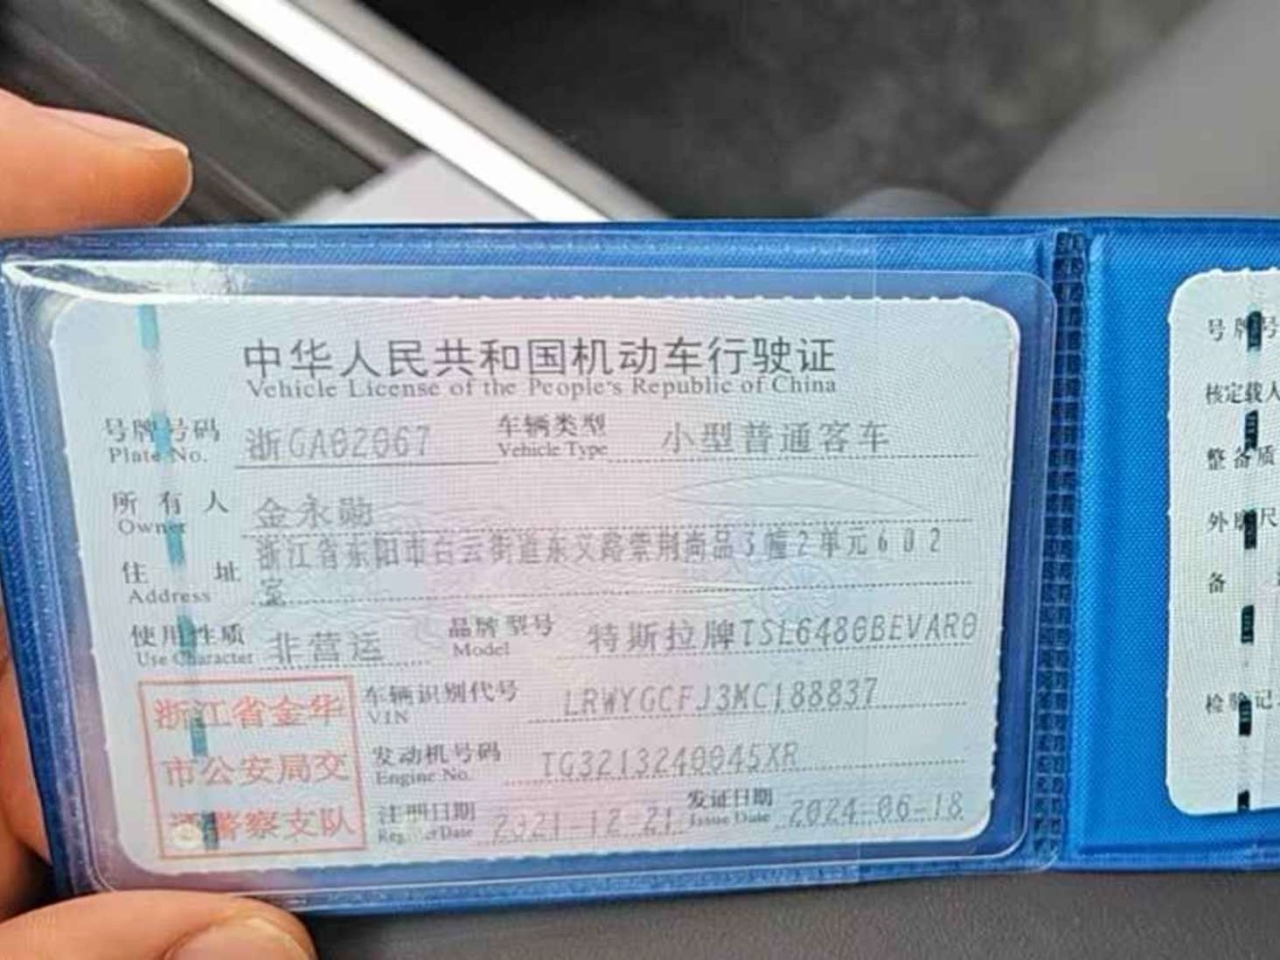 中华人民共和国机动车行驶证
Vehicle License of the People's Republic of China
号牌号码 浙GA02067 车辆类型 小型普通客车
Plate No. Vehicle Type
所有人 金永勋
Owner
浙江省东阳市白云街道东义路紫荆尚品3幢2单元602
住址 室
Address
使用性质 非营运 品牌型号 特斯拉牌TSL6480BEVAR0
Use Character Model
浙江省金华
市公安局交
通警察支队
车辆识别代号 LRWYGCFJ3MC188837
VIN
发动机号码 TG3213240045XR
Engine No.
注册日期 2021-12-21 发证日期 2024-06-18
Register Date Issue Date
号牌号
核定载人
整备质
外廓尺
备
检验记